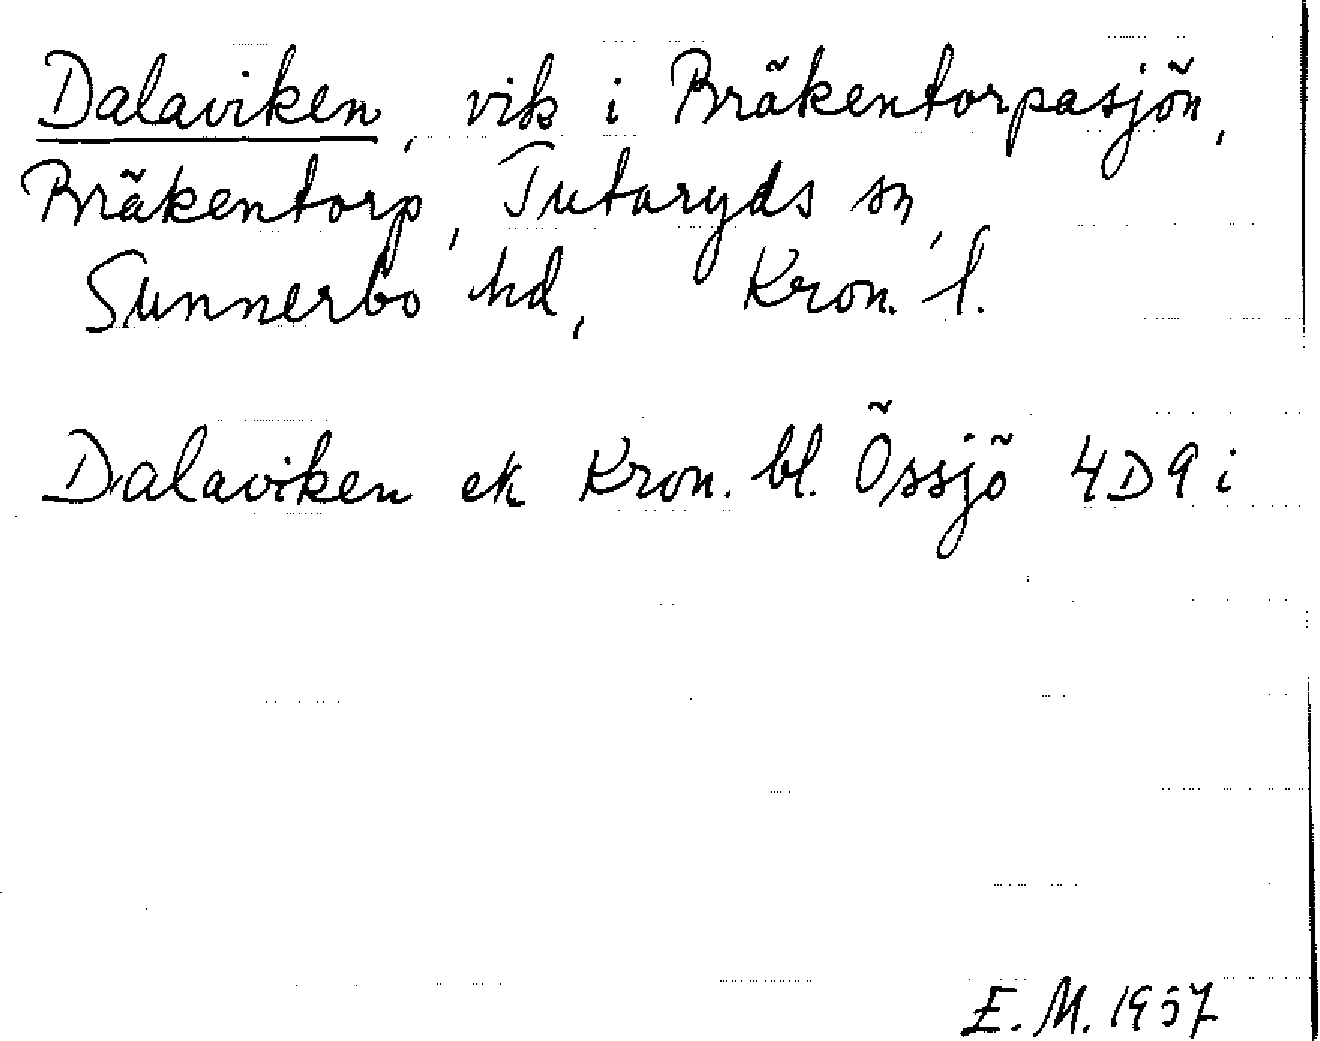 Dalaviken, vik i Bräkentorpasjön,
Bräkentorp, Tutaryds sn,
Sunnerbo hd, Kron. l.
Dalaviken ek Kron. bl. Össjö 4D9i
E.M. 1957